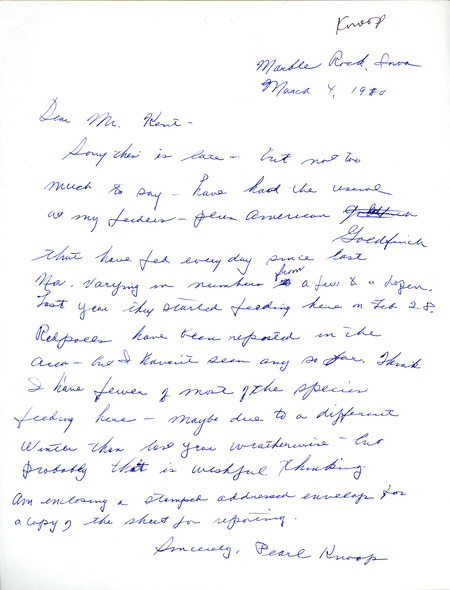 Knoop
Marble Rock, Iowa
March 4, 1980
Dear Mr. Kent-
Sorry this is late - but not too
much to say - have had the usual
at my feeders - plus American
Goldfinch
that have fed every day since last
Nov. varying in numbers from a few to a dozen.
Last year they started feeding here on Feb 28.
Redpolls have been reported in the
area - but I haven't seen any so far. Think
I have fewer of most of the species
feeding here - maybe due to a different
Winter than last year weatherwise - but
probably that is wishful thinking.
Am enclosing a stamped addressed envelope for
a copy of the sheet for reporting.
Sincerely, Pearl Knoop